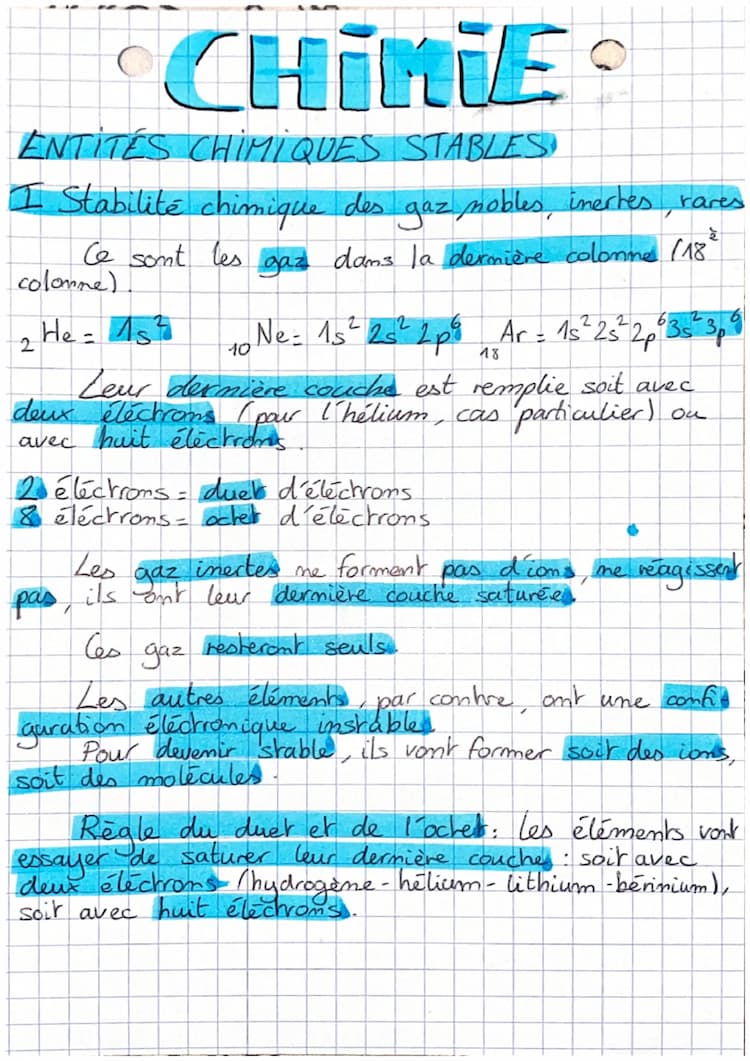 CHIMIE
ENTITÉS CHIMIQUES STABLES
I Stabilité chimique des gaz nobles, inertes, rares
Ce sont les gaz dans la dernière colonne (18è
colonne).
₂He = 1s² ₁₀Ne = 1s² 2s² 2p⁶ ₁₈Ar = 1s² 2s² 2p⁶ 3s² 3p⁶
Leur dernière couche est remplie soit avec
deux éléctrons (pour l'hélium, cas particulier) ou
avec huit éléctrons.
2 éléctrons = duet d'éléctrons
8 éléctrons = octet d'éléctrons
Les gaz inertes ne forment pas d'ions, ne réagissent
pas, ils ont leur dernière couche saturée.
Ces gaz resteront seuls.
Les autres éléments, par contre, ont une confi
guration éléctronique instable.
Pour devenir stable, ils vont former soit des ions,
soit des molécules.
Règle du duet et de l'octet : Les éléments vont
essayer de saturer leur dernière couche : soit avec
deux éléctrons (hydrogène - hélium - lithium - bérinium),
soit avec huit éléctrons.